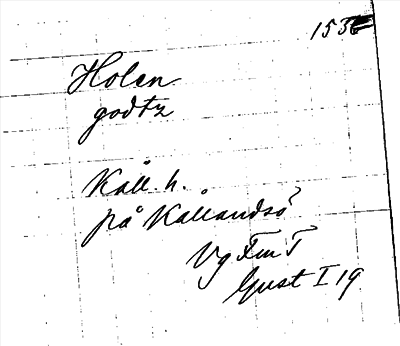 153
Holen
godtz
Kåll h.
på Kållandsö
Vg Fm T
Gust I 19